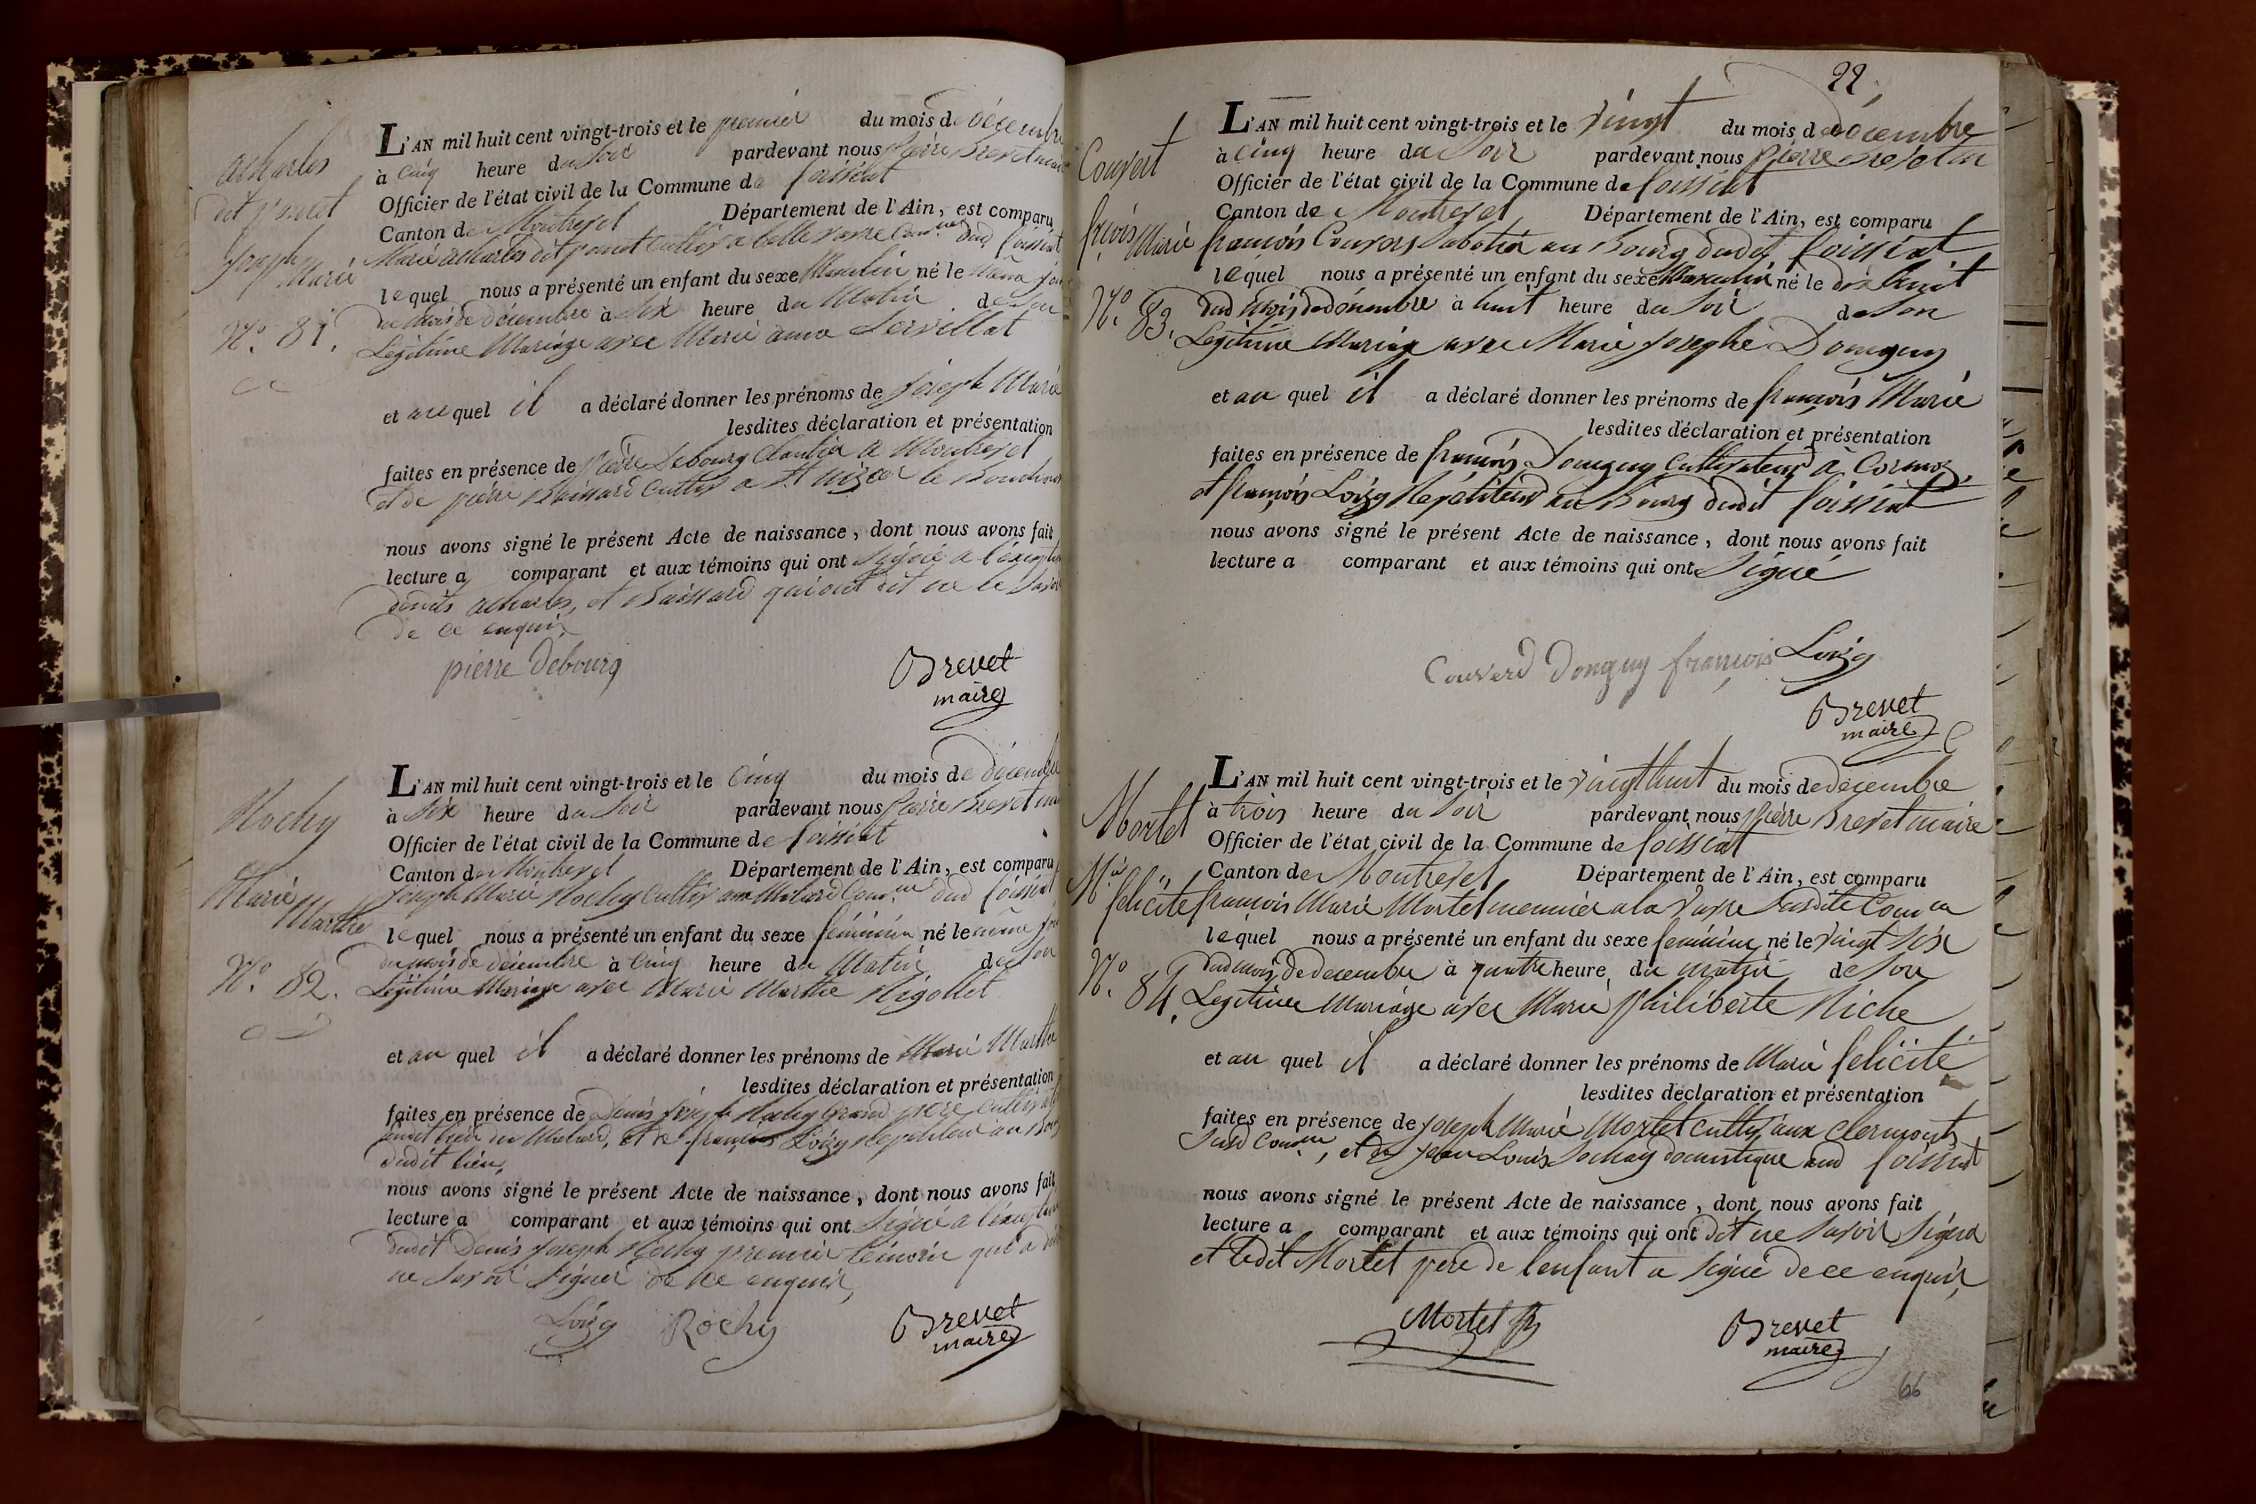 acharles
dit ponet
Joseph
Marie
N.º 81.
L'AN mil huit cent vingt-trois et le premier du mois de décembre
à cinq heure du Soir pardevant nous pierre Brevet maire
Officier de l'état civil de la Commune de foissiat
Canton de Montrevel Département de l'Ain, est comparu
Marie acharles dit ponet cultiv. a belle vavre Com.ne dud. foissiat
lequel nous a présenté un enfant du sexe Masculin né le même jour
du mois de décembre à six heure du Matin de Son
Légitime Mariage avec Marie anne Servillat
et au quel il a déclaré donner les prénoms de Joseph Marie
lesdites déclaration et présentation
faites en présence de pierre Debourg a Montrevel
et de pierre Boissard cultiv. a St nizier le Bouchoux
nous avons signé le présent Acte de naissance, dont nous avons fait
lecture a comparant et aux témoins qui ont Signé a l'exception
desdits acharles, et Boissard qui ont dit ne le Savoir
de ce enquis
pierre Debourg
Brevet
maire
Rochy
Marie
Marthe
N.º 82.
L'AN mil huit cent vingt-trois et le Cinq du mois de décembre
à six heure du Soir pardevant nous pierre Brevet maire
Officier de l'état civil de la Commune de foissiat
Canton de Montrevel Département de l'Ain, est comparu
Joseph Marie Rochy cultiv. au Com.ne dud. foissiat
lequel nous a présenté un enfant du sexe féminin né le même jour
du mois de décembre à Cinq heure du Matin de Son
Légitime Mariage avec Marie Marthe Rigollet
et au quel il a déclaré donner les prénoms de Marie Marthe
lesdites déclaration et présentation
faites en présence de Denis Joseph Rochy grand père cultiv.
et de françois Loizy Répétiteur au Bourg
dudit lieu,
nous avons signé le présent Acte de naissance, dont nous avons fait
lecture a comparant et aux témoins qui ont Signé a l'exception
dudit Denis Joseph Rochy premier témoin qui a dit
ne Savoir Signer de ce enquis,
Loizy Rochy
Brevet
maire
22.
Couvert
fr.çois Marie
N.º 83.
L'AN mil huit cent vingt-trois et le vingt du mois de décembre
à cinq heure du Soir pardevant nous pierre Brevet maire
Officier de l'état civil de la Commune de foissiat
Canton de Montrevel Département de l'Ain, est comparu
françois Couvert Sabotier au Bourg dudit foissiat
lequel nous a présenté un enfant du sexe Masculin né le dix huit
dud. mois de décembre à huit heure du Soir de Son
Légitime Mariage avec Marie Josephe Donguy
et au quel il a déclaré donner les prénoms de françois Marie
lesdites déclaration et présentation
faites en présence de françois Donguy cultivateur à Cormoz,
et françois Loizy Répétiteur au Bourg dudit foissiat
nous avons signé le présent Acte de naissance, dont nous avons fait
lecture a comparant et aux témoins qui ont Signé
Couverd Donguy françois Loizy
Brevet
maire
Mortel
M.ie
felicité
N.º 84.
L'AN mil huit cent vingt-trois et le vingt huit du mois de décembre
à trois heure du Soir pardevant nous pierre Brevet maire
Officier de l'état civil de la Commune de foissiat
Canton de Montrevel Département de l'Ain, est comparu
françois Marie Mortel meunier a la Susdite Com.ne
lequel nous a présenté un enfant du sexe feminin né le vingt six
dud. mois de decembre à quatre heure du matin de Son
Légitime Mariage avec Marie philiberte Niche
et au quel il a déclaré donner les prénoms de Marie felicité
lesdites déclaration et présentation
faites en présence de Joseph Marie Mortel cultiv. aux clermonts
Susd. Com.ne, et de Jean Louis Sochay domestique aud. foissiat
nous avons signé le présent Acte de naissance, dont nous avons fait
lecture a comparant et aux témoins qui ont dit ne Savoir Signer
et ledit Mortel père de lenfant a Signé de ce enquis,
Mortel
Brevet
maire
66